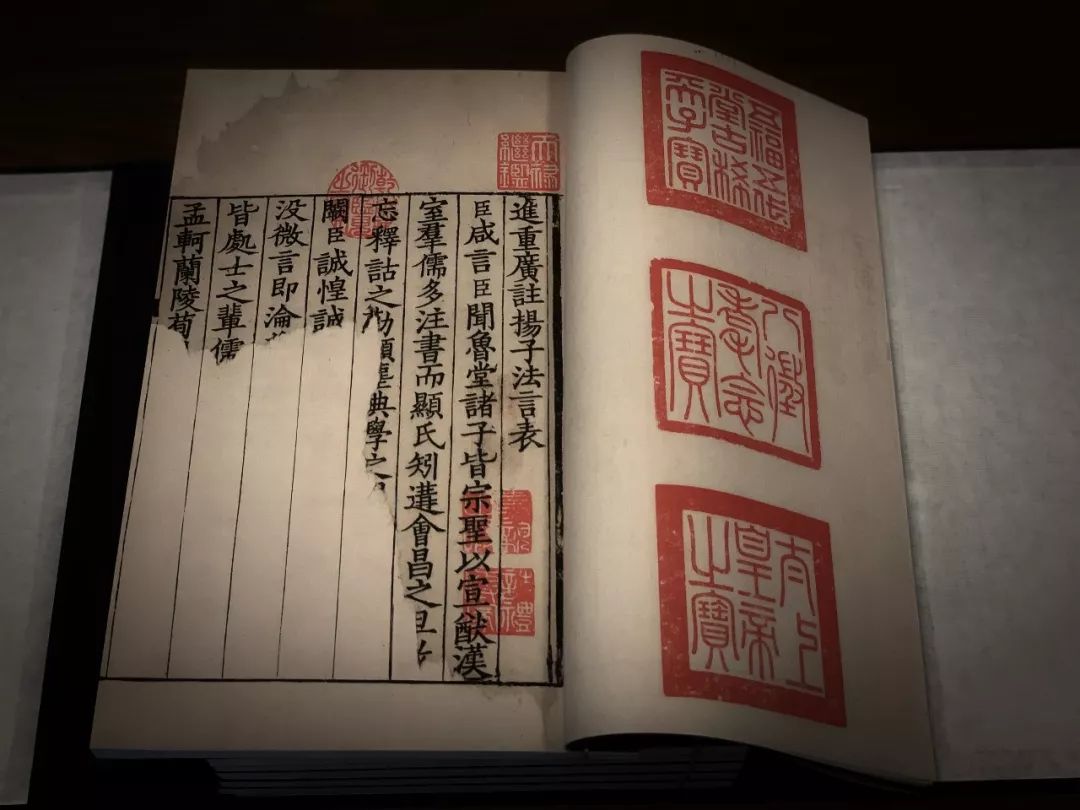 五福五代
堂古稀
天子寶
八徵
耄念
之寶
太上
皇帝
之寶
天祿
繼鑑
乾隆御覽之寶
進重廣註揚子法言表
臣咸言臣聞魯堂諸子皆宗聖以宣猷漢
室羣儒多注書而顯氏矧遘會昌之旦
忘釋詁之願塵典學之
闕臣誠惶誠
没微言即淪
皆處士之輩儒
孟軻蘭陵荀